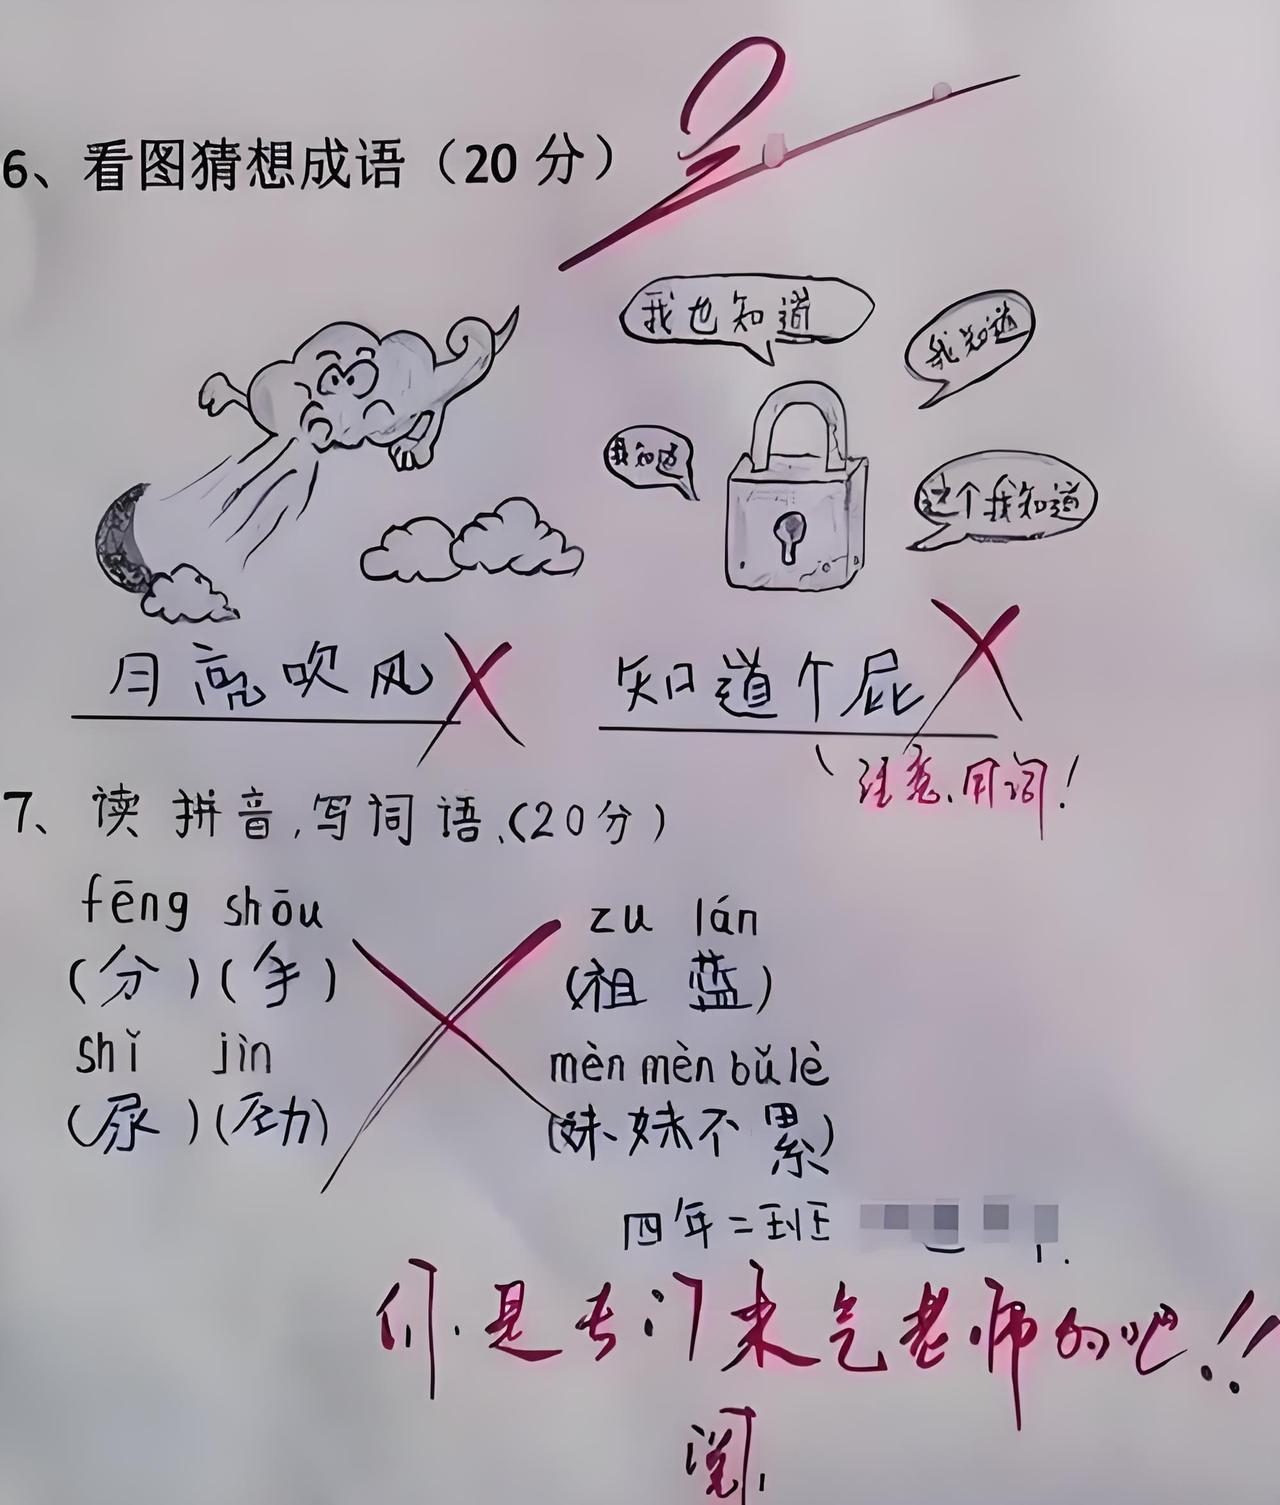 6、看图猜想成语（20 分）
我也知道
我知道
我知道
这个我知道
月亮吹风
知道个屁
注意用词!
7、读拼音,写词语.(20分)
fēng shōu
zu lán
(分)(手)
(祖 蓝)
shǐ jìn
mèn mèn bǔ lè
(尿)(劲)
(妹妹不累)
四年二班
你是专门来气老师的吧!!